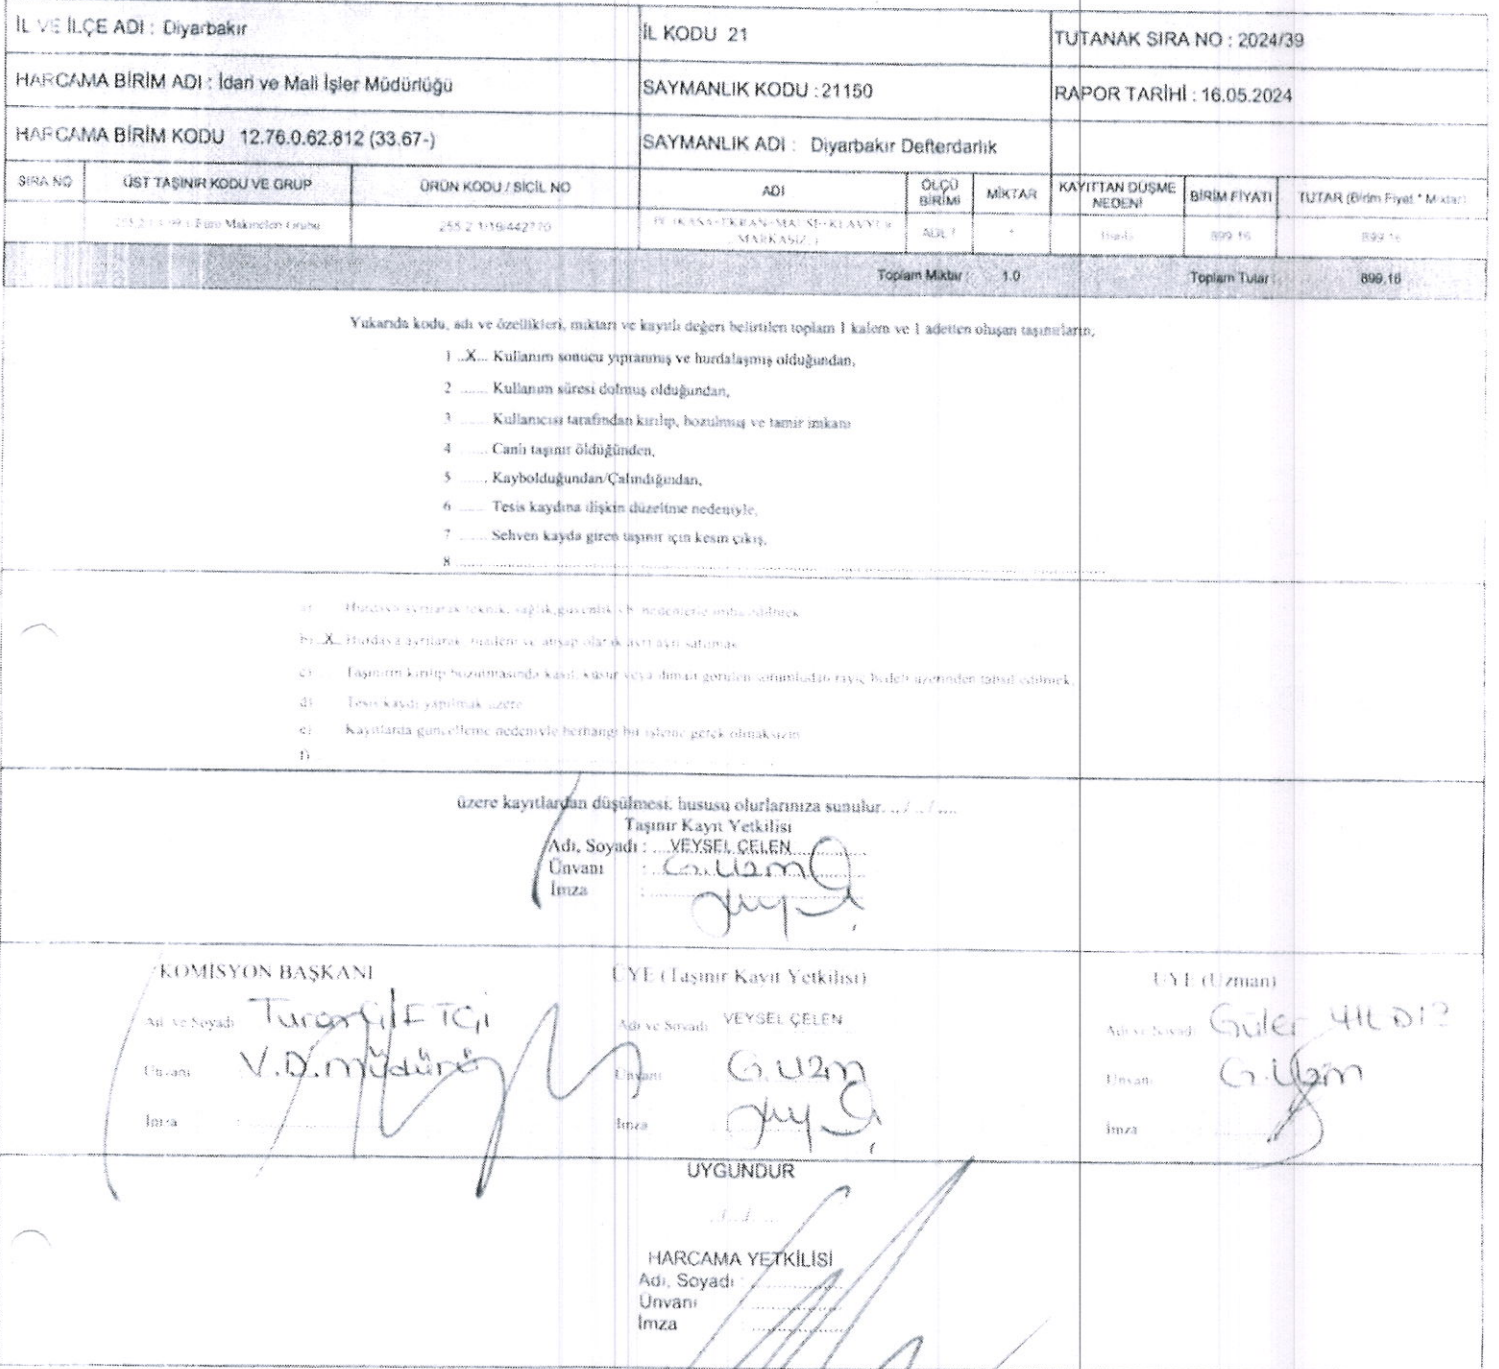 İL VE İLÇE ADI : Diyarbakır
İL KODU 21
TUTANAK SIRA NO : 2024/39
HARCAMA BİRİM ADI : İdari ve Mali İşler Müdürlüğü
SAYMANLIK KODU : 21150
RAPOR TARİHİ : 16.05.2024
HARCAMA BİRİM KODU 12.76.0.62.812 (33.67-)
SAYMANLIK ADI : Diyarbakır Defterdarlık
SIRA NO ÜST TAŞINIR KODU VE GRUP ÜRÜN KODU / SİCİL NO ADI ÖLÇÜ BİRİMİ MİKTAR KAYITTAN DÜŞME NEDENİ BİRİM FİYATI TUTAR (Birim Fiyat * Miktar)
Büro Makineleri Grubu 899.16 899.16
Toplam Miktar : 1.0 Toplam Tutar : 899,16
Yukarıda kodu, adı ve özellikleri, miktarı ve kayıtlı değeri belirtilen toplam 1 kalem ve 1 adetten oluşan taşınırların;
1 ..X... Kullanım sonucu yıpranmış ve hurdalaşmış olduğundan,
2 ....... Kullanım süresi dolmuş olduğundan,
3 Kullanıcısı tarafından kırılıp, bozulmuş ve tamir imkanı
4 ...... Canlı taşınır öldüğünden,
5 ...... Kaybolduğundan/Çalındığından,
6 ...... Tesis kaydına ilişkin düzeltme nedeniyle,
7 ...... Sehven kayda giren taşınır için kesin çıkış,
8
a) Hurdaya ayrılarak teknik, sağlık, güvenlik vb. nedenlerle imha edilmek
b) ..X.. Hurdaya ayrılarak, madeni ve ahşap olarak ayrı ayrı satılmak
c) Taşınırın kırılıp bozulmasında kasıt, kusur veya ihmali görülen sorumludan rayiç bedeli üzerinden tahsil edilmek,
d) Tesis kaydı yapılmak üzere
e) Kayıtlarda güncelleme nedeniyle herhangi bir işleme gerek olmaksızın
f)
üzere kayıtlardan düşülmesi, hususu olurlarınıza sunulur. .../.../....
Taşınır Kayıt Yetkilisi
Adı, Soyadı : ....VEYSEL ÇELEN
Ünvanı : G.Uzm
İmza :
KOMİSYON BAŞKANI
ÜYE (Taşınır Kayıt Yetkilisi)
ÜYE (Uzman)
Adı ve Soyadı Turan ÇİFTÇİ
Adı ve Soyadı VEYSEL ÇELEN
Adı ve Soyadı Güler YILDIZ
Ünvanı V.D.müdürü
Ünvanı G.Uzm
Ünvanı G.Uzm
İmza
İmza
İmza
UYGUNDUR
.../.../....
HARCAMA YETKİLİSİ
Adı, Soyadı :
Ünvanı
İmza